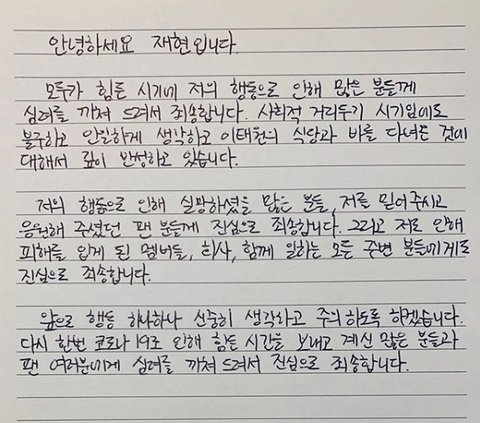 안녕하세요 재현입니다.
모두가 힘든 시기에 저의 행동으로 인해 많은 분들께
심려를 끼쳐 드려서 죄송합니다. 사회적 거리두기 시기임에도
불구하고 안일하게 생각하고 이태원의 식당과 바를 다녀온 것에
대해서 깊이 반성하고 있습니다.
저의 행동으로 인해 실망하셨을 많은 분들, 저를 믿어주시고
응원해 주셨던 팬 분들께 진심으로 죄송합니다. 그리고 저로 인해
피해를 입게 된 멤버들, 회사, 함께 일하는 모든 주변 분들에게도
진심으로 죄송합니다.
앞으로 행동 하나하나 신중히 생각하고 주의하도록 하겠습니다.
다시 한번 코로나 19로 인해 힘든 시간을 보내고 계신 많은 분들과
팬 여러분에게 심려를 끼쳐 드려서 진심으로 죄송합니다.